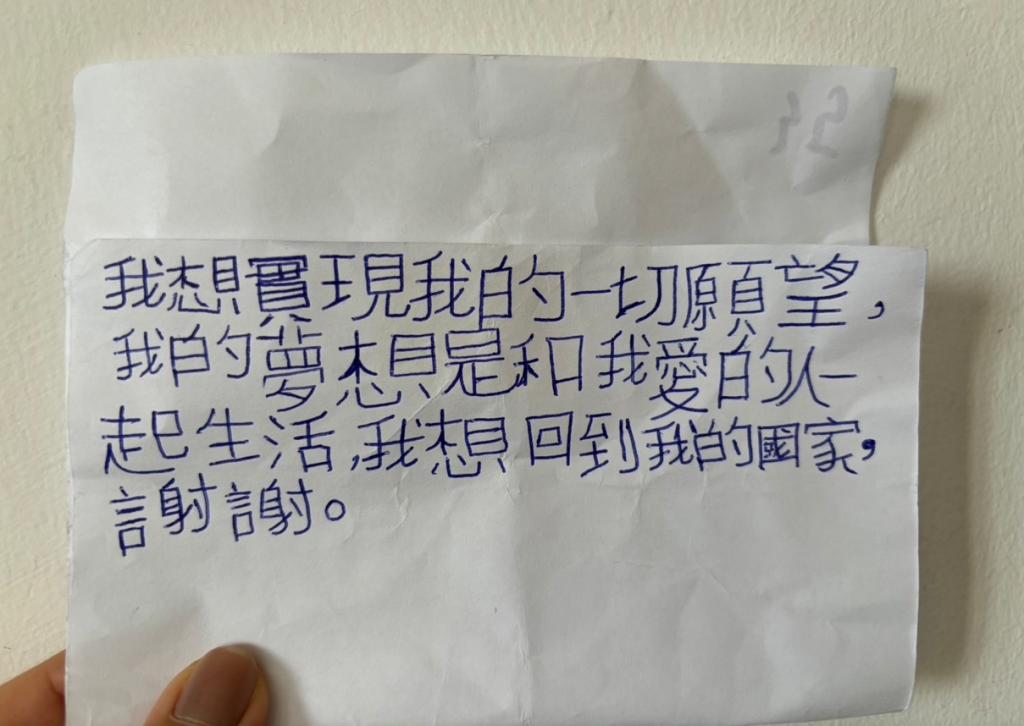 我想實現我的一切願望，
我的夢想是和我愛的人一
起生活，我想回到我的國家，
謝謝。